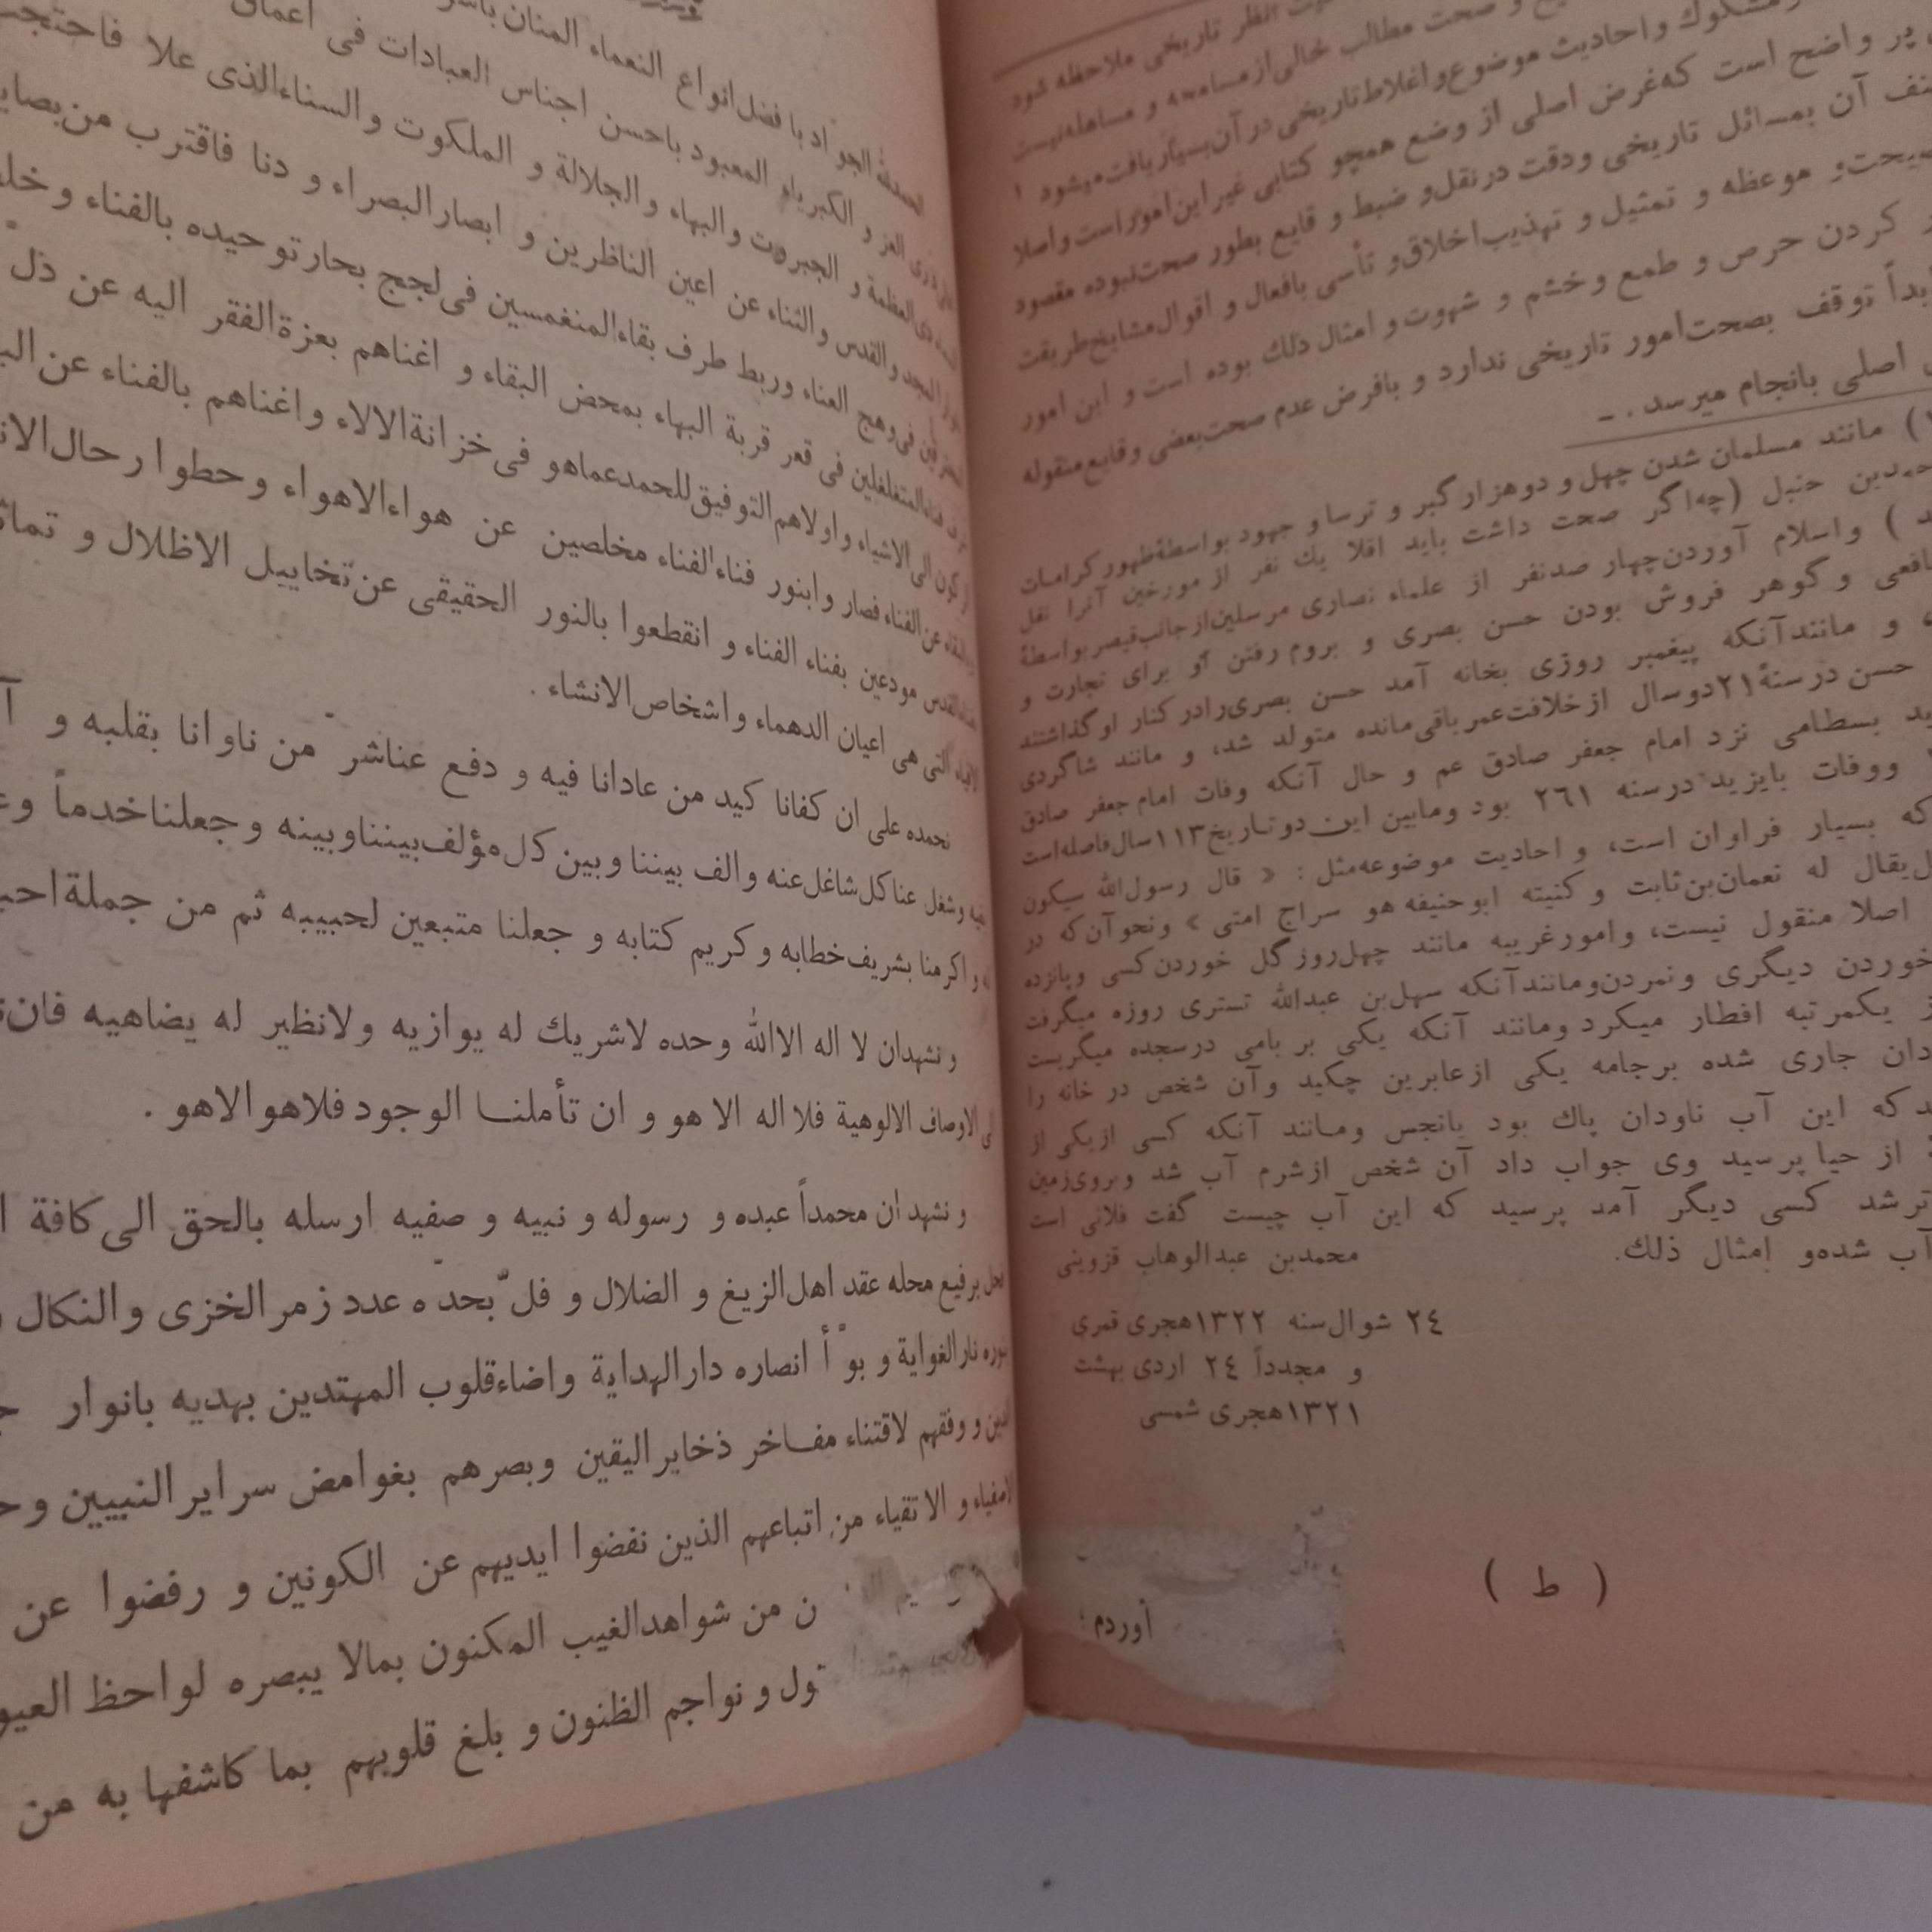 نظر تاریخی ملاحظه شود
و صحت مطالب خالی از مسامحه و مساهله نیست
مشکوك و احادیث موضوع و اغلاط تاریخی در آن بسیار یافت میشود ١
پر واضح است که غرض اصلی از وضع همچو کتابی غیر این امور است و اصلا
آن بمسائل تاریخی و دقت در نقل و ضبط و قایع بطور صحت نبوده مقصود
موعظه و تمثیل و تهذیب اخلاق و تأسی بافعال و اقوال مشایخ طریقت
کردن حرص و طمع و خشم و شهوت و امثال ذلك بوده است و این امور
توقف بصحت امور تاریخی ندارد و بافرض عدم صحت بعضی وقایع منقوله
اصلی بانجام میرسد . ـ
) مانند مسلمان شدن چهل و دو هزار گبر و ترسا و جهود بواسطهٔ ظهور کرامات
بن حنبل (چه اگر صحت داشت باید اقلا یك نفر از مورخین آنرا نقل
) و اسلام آوردن چهار صد نفر از علماء نصاری مرسلین از جانب قیصر بواسطهٔ
و گوهر فروش بودن حسن بصری و بروم رفتن او برای تجارت و
و مانند آنکه پیغمبر روزی بخانه آمد حسن بصری را در کنار او گذاشتند
حسن در سنهٔ ٢١ دو سال از خلافت عمر باقی مانده متولد شد، و مانند شاگردی
بسطامی نزد امام جعفر صادق عم و حال آنکه وفات امام جعفر صادق
ووفات بایزید در سنه ٢٦١ بود ومابین این دو تاریخ ١١٣ سال فاصله است
که بسیار فراوان است، و احادیث موضوعه مثل : « قال رسول الله سیکون
یقال له نعمان بن ثابت و کنیته ابوحنیفه هو سراج امتی » ونحو آن که در
اصلا منقول نیست، و امور غریبه مانند چهل روز گل خوردن کسی و پانزده
خوردن دیگری و نمردن و مانند آنکه سهل بن عبدالله تستری روزه میگرفت
یکمرتبه افطار میکرد ومانند آنکه یکی بر بامی در سجده میگریست
جاری شده بر جامه یکی از عابرین چکید و آن شخص در خانه را
که این آب ناودان پاك بود یا نجس ومانند آنکه کسی از یکی از
از حیا پرسید وی جواب داد آن شخص از شرم آب شد و بروی زمین
کسی دیگر آمد پرسید که این آب چیست گفت فلانی است
آب شده و امثال ذلك.
محمدبن عبدالوهاب قزوینی
٢٤ شوال سنه ١٣٢٢ هجری قمری
و مجدداً ٢٤ اردی بهشت
١٣٢١ هجری شمسی
آوردم
( ط )
الحمدلله الجو ّاد با فضل انواع النعماء المنان
العز و الكبریاء المعبود باحسن اجناس العبادات فی
ذی العظمة و الجبروت والبهاء والجلالة و الملکوت والسناء الذی علا فاحتجب
المجد والقدس والثناء عن اعین الناظرین و ابصار البصراء و دنا فاقترب من
فی وهج العناء وربط طرف بقاء المنغمسین فی لجج بحار توحیده بالفناء و
المتغلغلین فی قعر قربة البهاء بمحض البقاء و اغناهم بعزة الفقر الیه عن ذل ّ
الی الاشیاء و اولاهم التوفیق للحمد عما هو فی خزانة الالاء و اغناهم بالفناء عن
عن الفناء فصار وابنور فناء الفناء مخلصین عن هواء الاهواء و حطوا رحال
القدس مودعین بفناء الفناء و انقطعوا بالنور الحقیقی عن تخاییل الاظلال و
التی هی اعیان الدهماء واشخاص الانشاء .
نحمده علی ان کفانا کید من عادانا فیه و دفع عناشر ّ من ناوانا بقلبه و
وشغل عنا کل شاغل عنه والف بیننا وبین کل مؤلف بیننا وبینه و جعلنا خدماً
و اکرمنا بشریف خطابه و کریم کتابه و جعلنا متبعین لحبیبه ثم من جملة
و نشهد ان لا اله الا الله وحده لاشریك له یوازیه ولانظیر له یضاهیه
الاوصاف الالوهیة فلا اله الا هو و ان تأملنا الوجود فلاهو الاهو .
و نشهد ان محمداً عبده و رسوله و نبیه و صفیه ارسله بالحق الی کافة
برفیع محله عقد اهل الزیغ و الضلال و فل ّ بحد ّه عدد زمر الخزی والنکال
نار الغوایة و بو ّأ انصاره دار الهدایة واضاء قلوب المهتدین بهدیه بانوار
و وفقهم لاقتناء مفاخر ذخایر الیقین و بصرهم بغوامض سرایر النبیین
و الاتقیاء من اتباعهم الذین نفضوا ایدیهم عن الکونین و رفضوا عن
من شواهد الغیب المکنون بمالا یبصره لواحظ
و نواجم الظنون و بلغ قلوبهم بما کاشفها به من